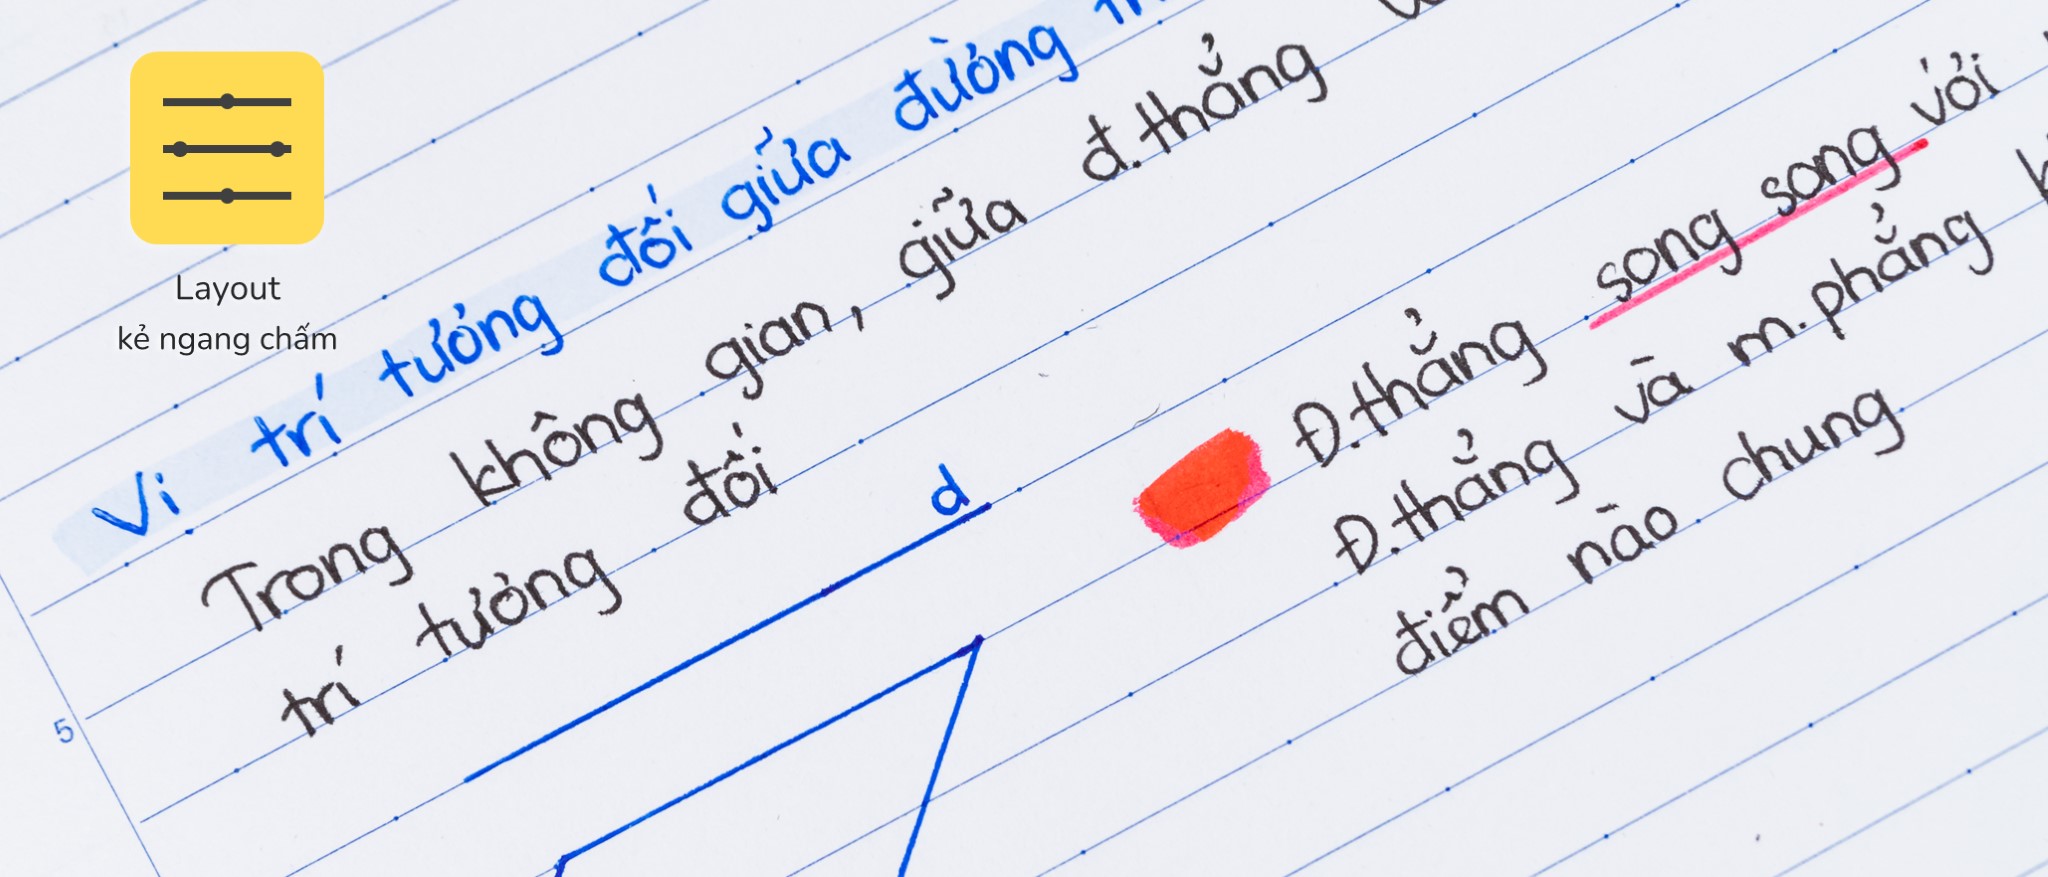 Layout
kẻ ngang chấm
Vi trí tương đối giữa đường
Trong không gian, giữa đ.thẳng
trí tương đối
d
5
Đ.thẳng song song với
Đ.thẳng và m.phẳng
điểm nào chung